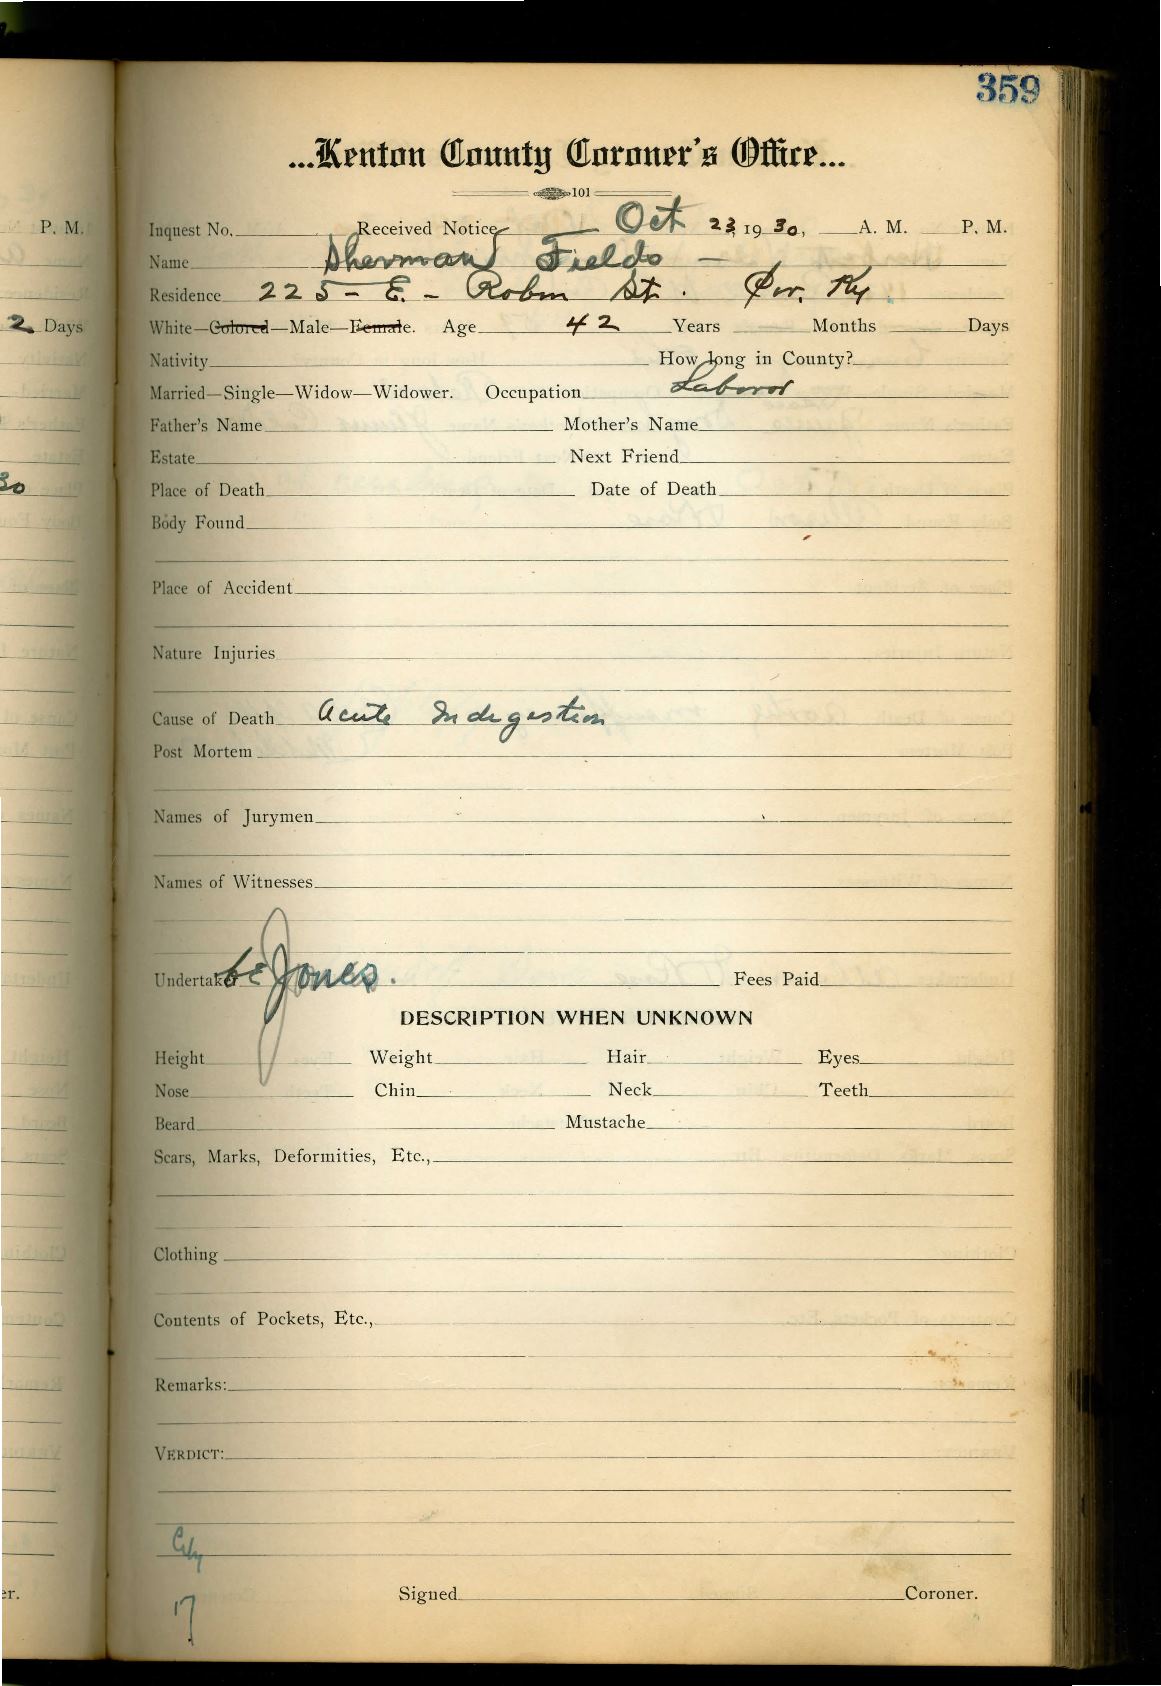 359
...Kenton County Coroner's Office...
101
P. M. Inquest No. Received Notice Oct 23, 1930, A. M. P. M.
Name Sherman Fields —
Residence 225 - E. - Robin St. Cov. Ky.
2 Days White—Colored—Male—Female. Age 42 Years Months Days
Nativity How long in County?
Married—Single—Widow—Widower. Occupation Labor
Father's Name Mother's Name
Estate Next Friend
30 Place of Death Date of Death
Body Found
Place of Accident
Nature Injuries
Cause of Death Acute Indigestion
Post Mortem
Names of Jurymen
Names of Witnesses
Undertaker CE Jones. Fees Paid
DESCRIPTION WHEN UNKNOWN
Height Weight Hair Eyes
Nose Chin Neck Teeth
Beard Mustache
Scars, Marks, Deformities, Etc.,
Clothing
Contents of Pockets, Etc.,
Remarks:
VERDICT:
City
er. Signed Coroner.
17